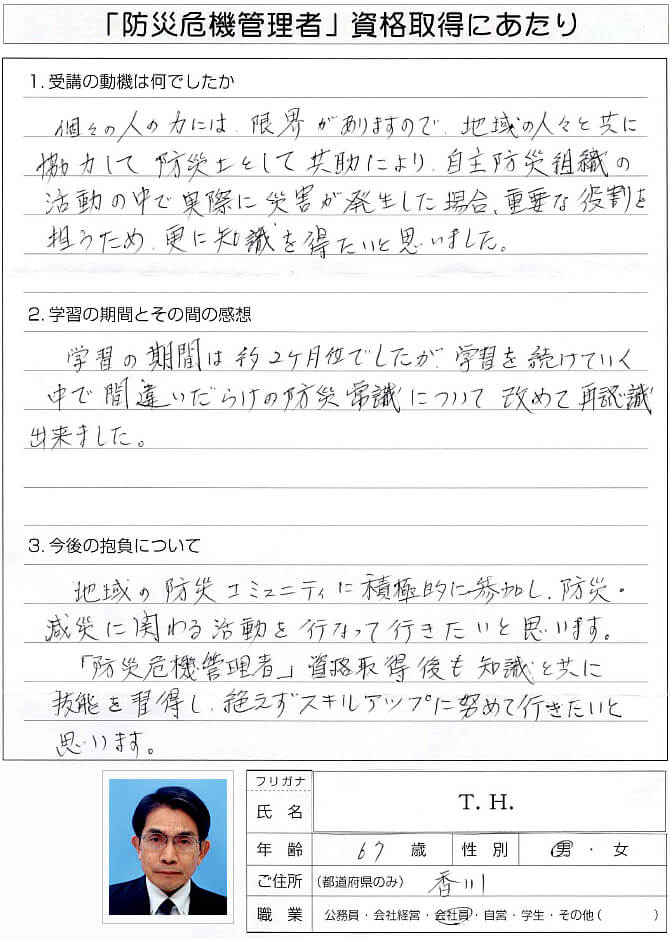 「防災危機管理者」資格取得にあたり
1. 受講の動機は何でしたか
個々の人の力には、限界がありますので、地域の人々と共に
協力して防災士として共助により、自主防災組織の
活動の中で実際に災害が発生した場合、重要な役割を
担うため、更に知識を得たいと思いました。
2. 学習の期間とその間の感想
学習の期間は約2ケ月位でしたが、学習を続けていく
中で間違いだらけの防災常識について改めて再認識
出来ました。
3. 今後の抱負について
地域の防災コミュニティに積極的に参加し、防災・
減災に関わる活動を行なって行きたいと思います。
「防災危機管理者」資格取得後も知識と共に
技能を習得し、絶えずスキルアップに努めて行きたいと
思います。
フリガナ
氏名 T. H.
年齢 67 歳 性別 男・女
ご住所 (都道府県のみ) 香川
職業 公務員・会社経営・会社員・自営・学生・その他( )